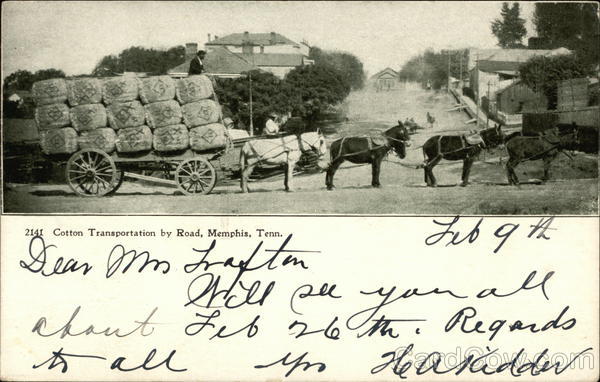 2141 Cotton Transportation by Road, Memphis, Tenn.
Feb 9th
Dear Mrs Trafton
Will see you all
about Feb 26th. Regards
to all Yrs H A Kidder
CardCow.com